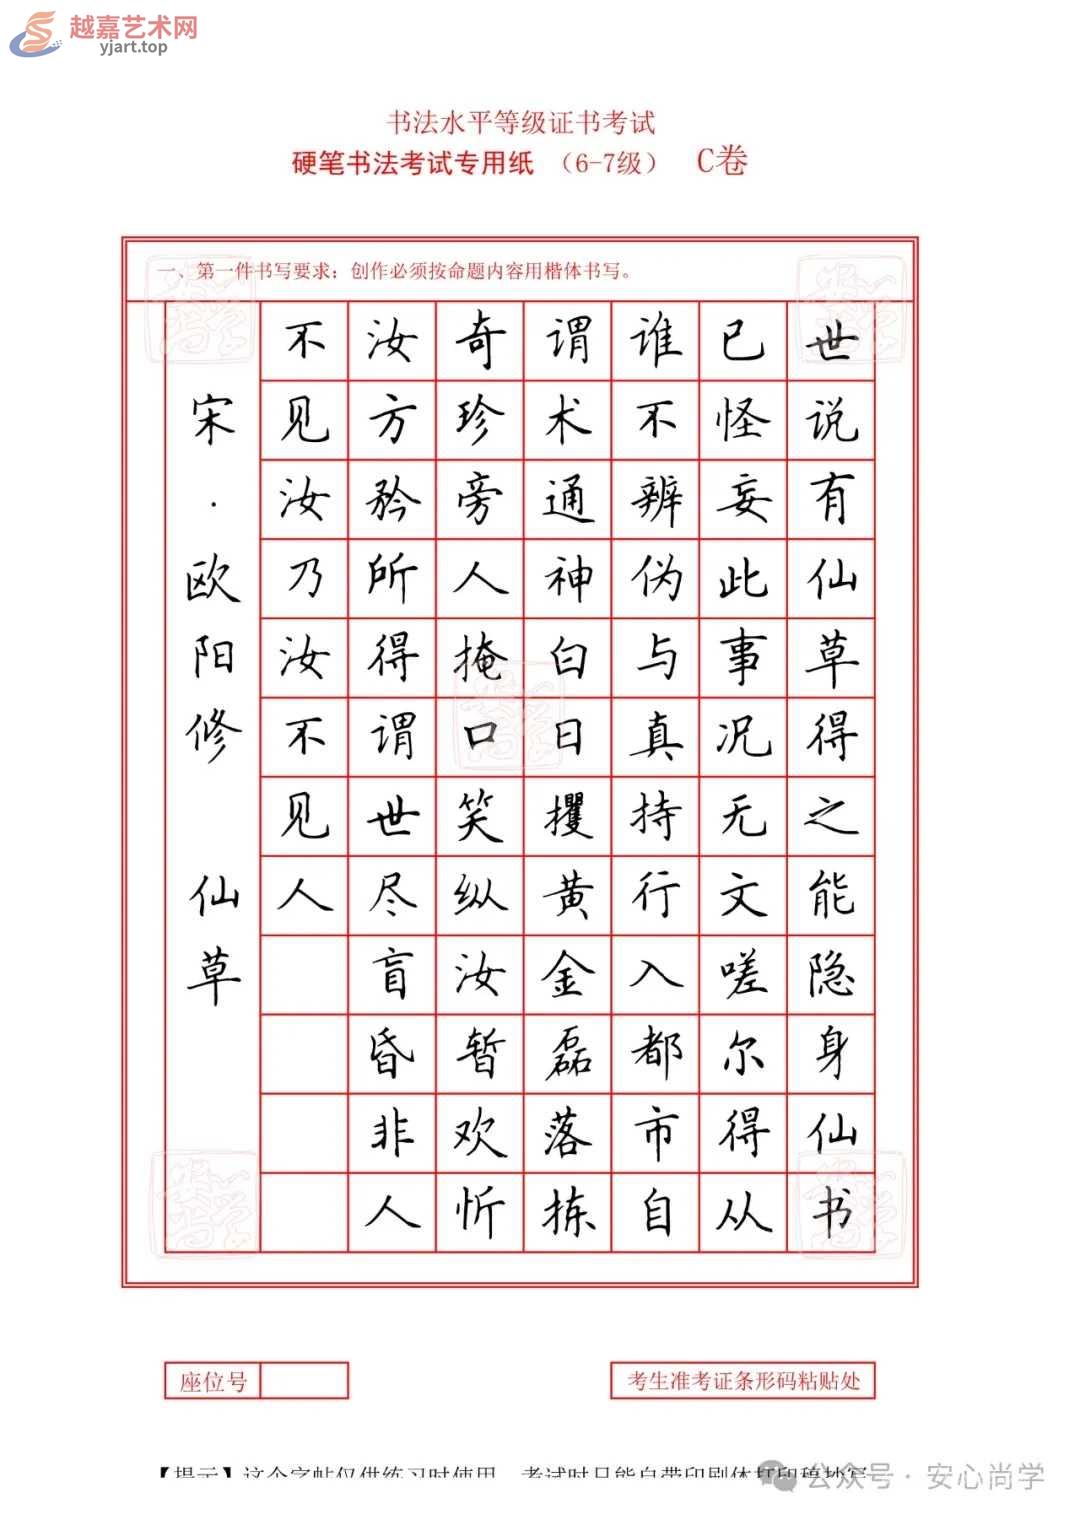 越嘉艺术网
yjart.top
书法水平等级证书考试
硬笔书法考试专用纸 （6-7级） C卷
一、第一件书写要求：创作必须按命题内容用楷体书写。
世说有仙草得之能隐身仙书
已怪妄此事况无文嗟尔得从
谁不辨伪与真持行入都市自
谓术通神白日攫黄金磊落拣
奇珍旁人掩口笑纵汝暂欢忻
汝方矜所得谓世尽盲昏非人
不见汝乃汝不见人
宋·欧阳修 仙草
座位号
考生准考证条形码粘贴处
【提示】这个字帖仅供练习时使用，考试时只能自带印刷体打印稿抄写
公众号·安心尚学